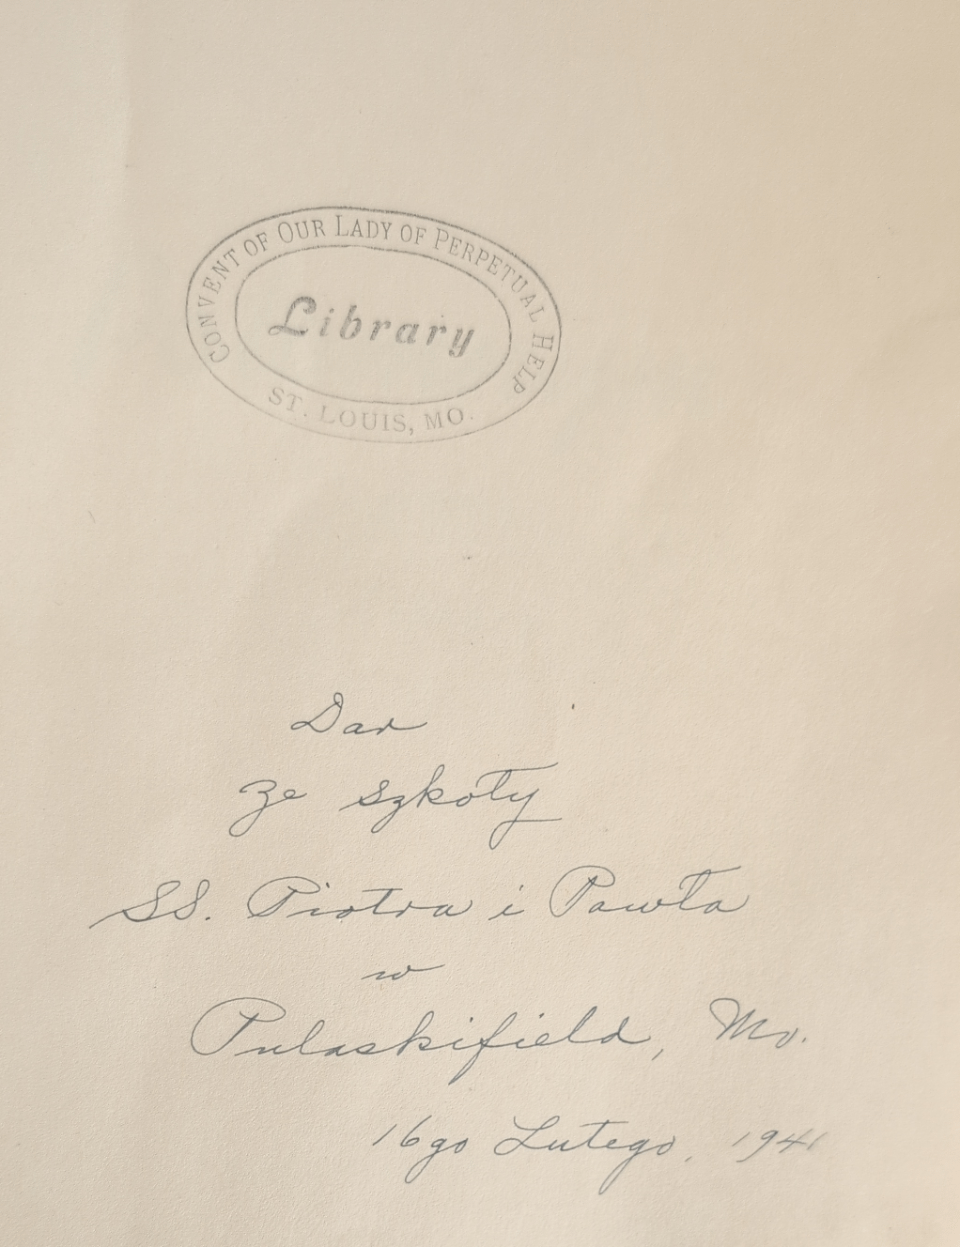 CONVENT OF OUR LADY OF PERPETUAL HELP
Library
ST. LOUIS, MO.
Dar
ze szkoły
SS. Piotra i Pawła
w
Pulaskifield, Mo.
16go Lutego, 1941